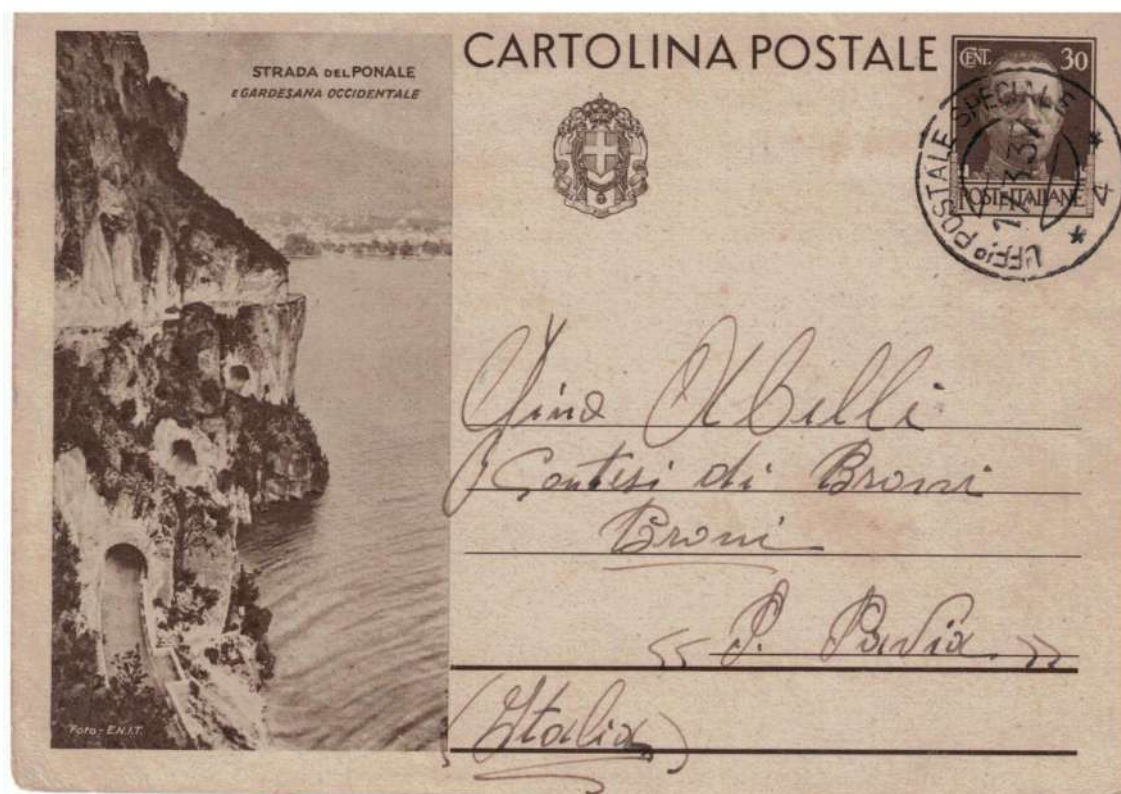 STRADA DEL PONALE
E GARDESANA OCCIDENTALE
Foto - E.N.I.T.
CARTOLINA POSTALE
CENT. 30
POSTE ITALIANE
UFFIO POSTALE SPECIALE
* 4 *
di Broni
Broni
« P. Pavia »
(Italia)